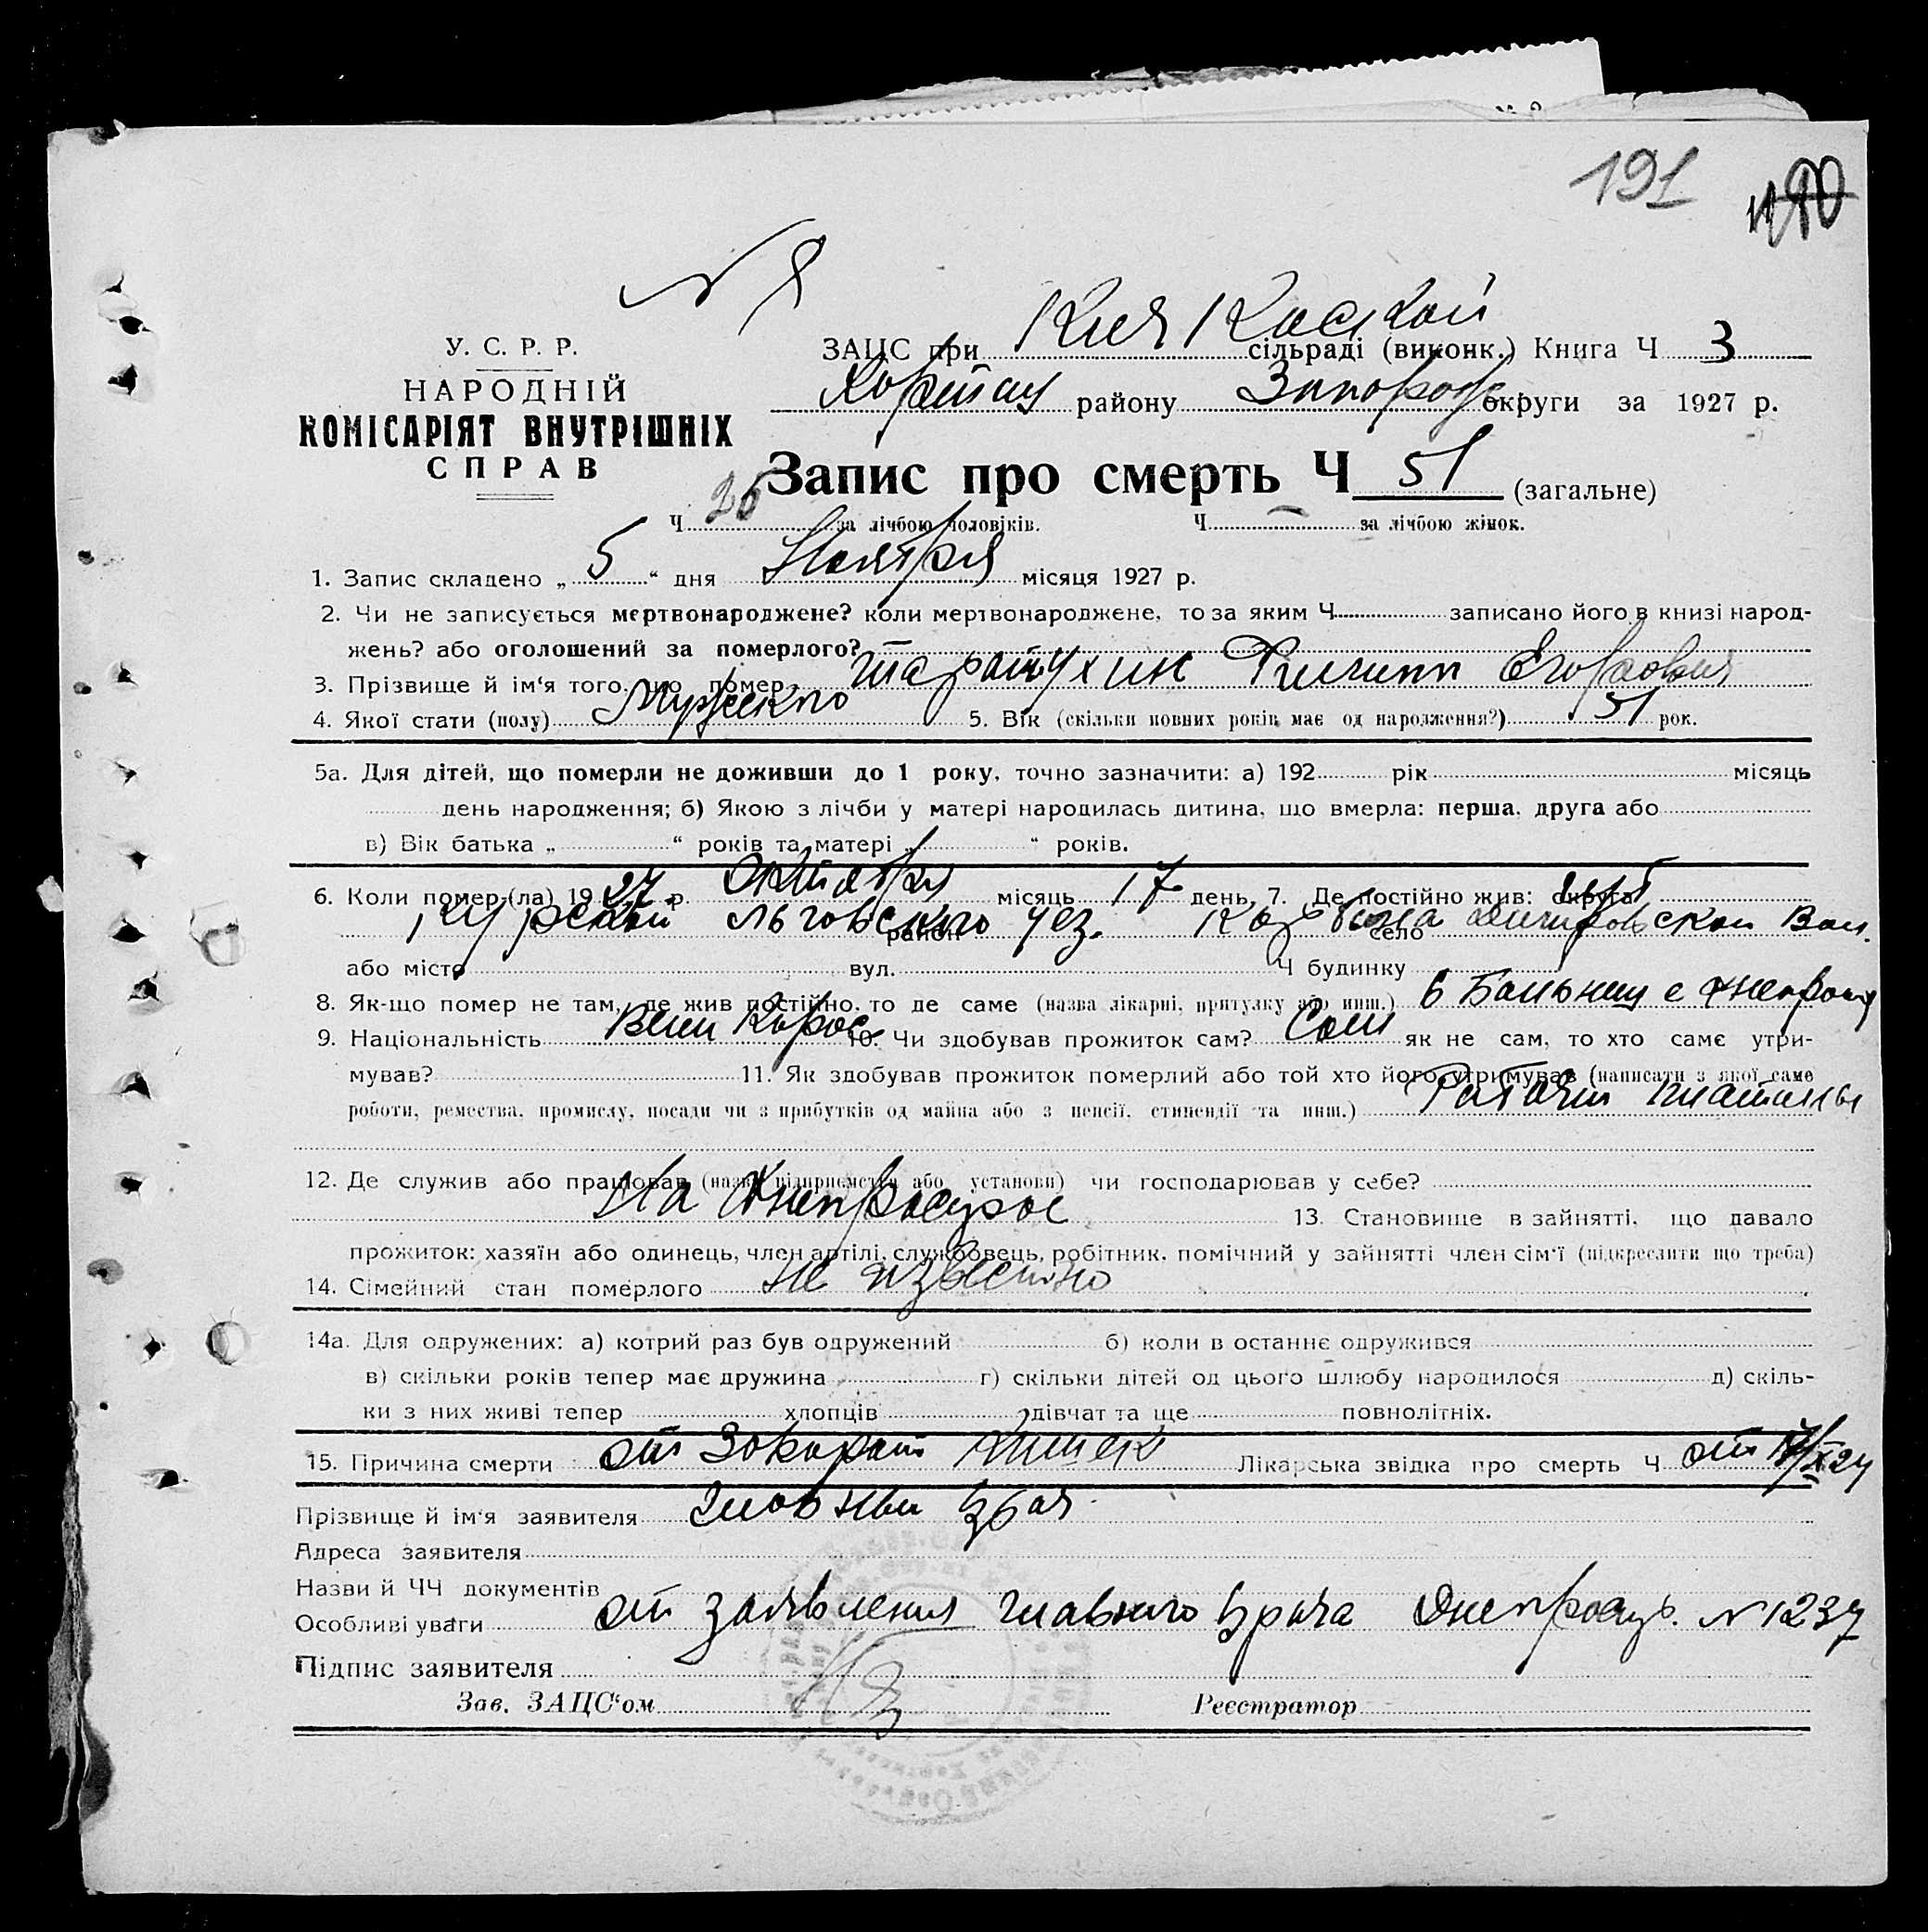 191
N 8
У. С. Р. Р.
НАРОДНІЙ
КОМІСАРІЯТ ВНУТРІШНІХ
СПРАВ
ЗАЦС при Кичкаской сільраді (виконк.) Книга Ч 3
району Запорож округи за 1927 р.
Запис про смерть Ч 51 (загальне)
Ч 26 за лічбою чоловіків. Ч — за лічбою жінок.
1. Запис складено „ 5 “ дня Ноября місяця 1927 р.
2. Чи не записується мертвонароджене? коли мертвонароджене, то за яким Ч записано його в книзі народ-
жень? або оголошений за померлого?
3. Прізвище й ім‘я того, що помер Филипп Егорович
4. Якої стати (полу) Мужского 5. Вік (скільки повних років має од народження?) 51 рок.
5а. Для дітей, що померли не доживши до 1 року, точно зазначити: а) 192 рік місяць
день народження; б) Якою з лічби у матері народилась дитина, що вмерла: перша, друга або
в) Вік батька „ “ років та матері „ “ років.
6. Коли помер (ла) 1927 р. Октября місяць 17 день 7. Де постійно жив: округа
Курской Льговского район уез. село Вол.
або місто вул. Ч будинку
8. Як-що помер не там, де жив постійно, то де саме (назва лікарні, притулку або инш.) в
9. Національність 10. Чи здобував прожиток сам? Сам як не сам, то хто саме утри-
мував? 11. Як здобував прожиток померлий або той хто його утримував (написати з якої саме
роботи, ремества, промислу, посади чи з прибутків од майна або з пенсії, стипендії та инш.)
12. Де служив або працював (назва підприємства або установи) чи господарював у себе?
На 13. Становище в зайнятті, що давало
прожиток: хазяїн або одинець, член артілі, службовець, робітник, помічний у зайнятті член сім‘ї (підкреслити що треба)
14. Сімейний стан померлого не известно
14а. Для одружених: а) котрий раз був одружений б) коли в останнє одружився
в) скільки років тепер має дружина г) скільки дітей од цього шлюбу народилося д) скіль-
ки з них живі тепер хлопців дівчат та ще повнолітніх.
15. Причина смерти от Лікарська звідка про смерть Ч от
Прізвище й ім‘я заявителя
Адреса заявителя
Назви й ЧЧ документів
Особливі уваги от заявления главного врача N 1237
Підпис заявителя
Зав. ЗАЦС‘ом Реєстратор